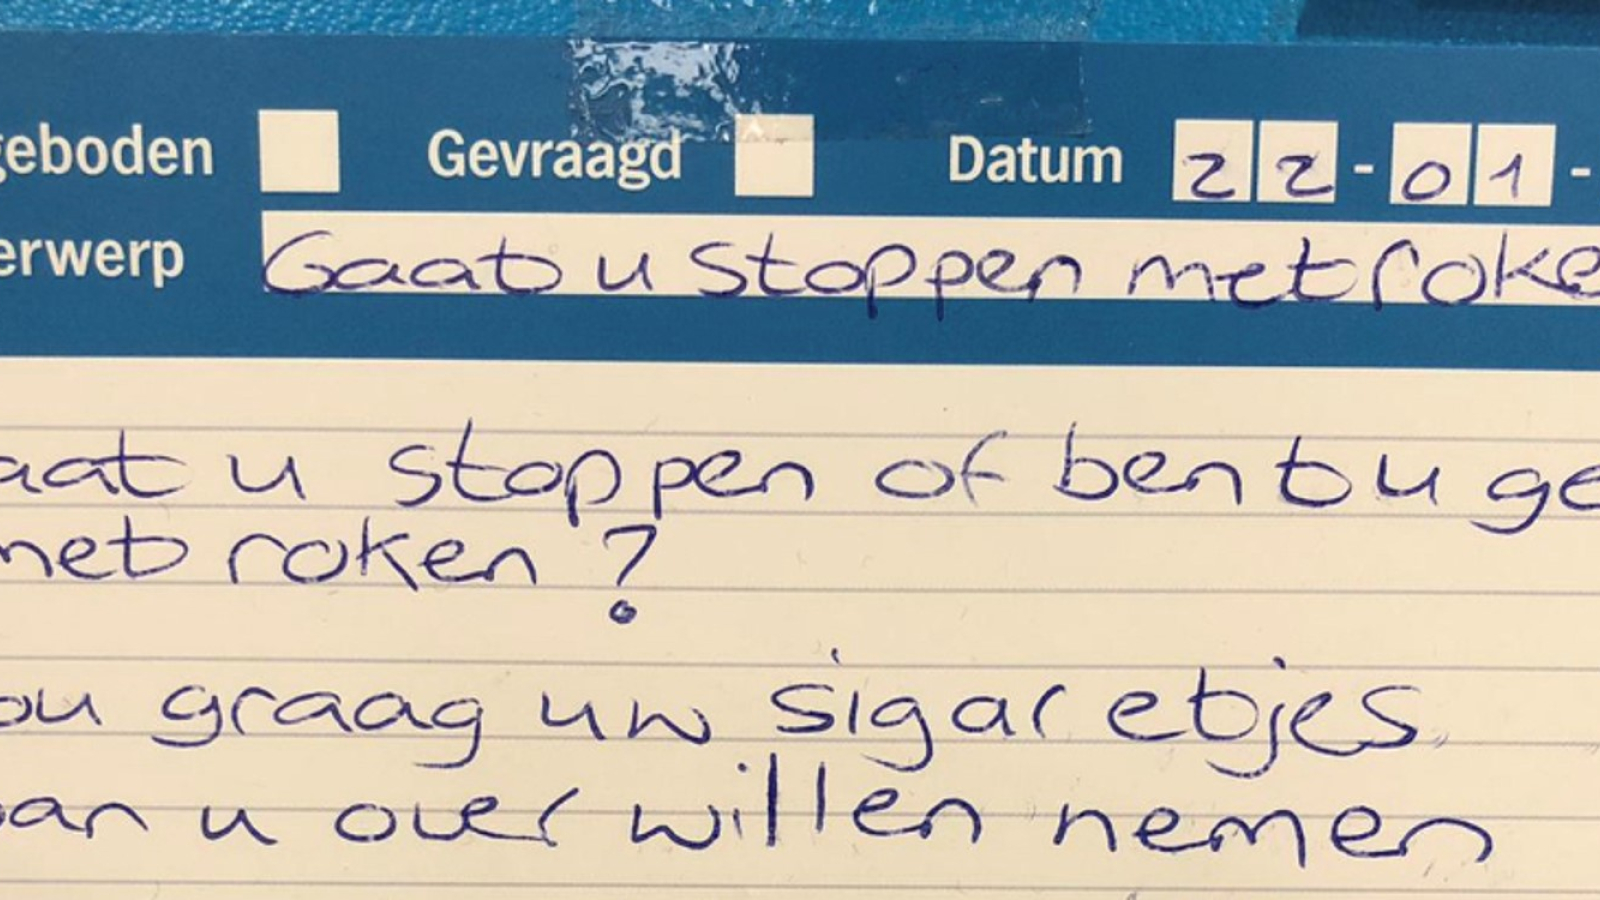 geboden Gevraagd Datum 22-01-
erwerp Gaat u stoppen met roke
aat u stoppen of bent u ge
met roken?
ou graag uw sigaretjes
van u over willen nemen